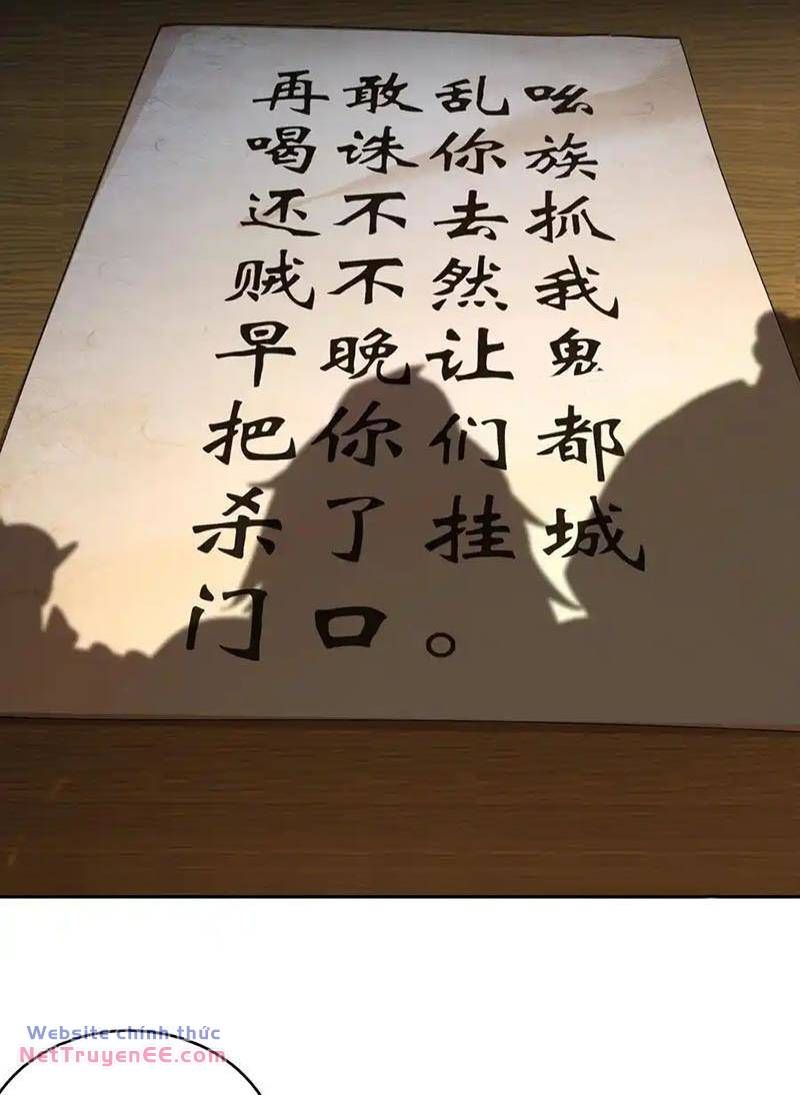 再敢乱吆
喝诛你族
还不去抓
贼不然我
早晚让鬼
把你们都
杀了挂城
门口。
Website chính thức
NetTruyenEE.com